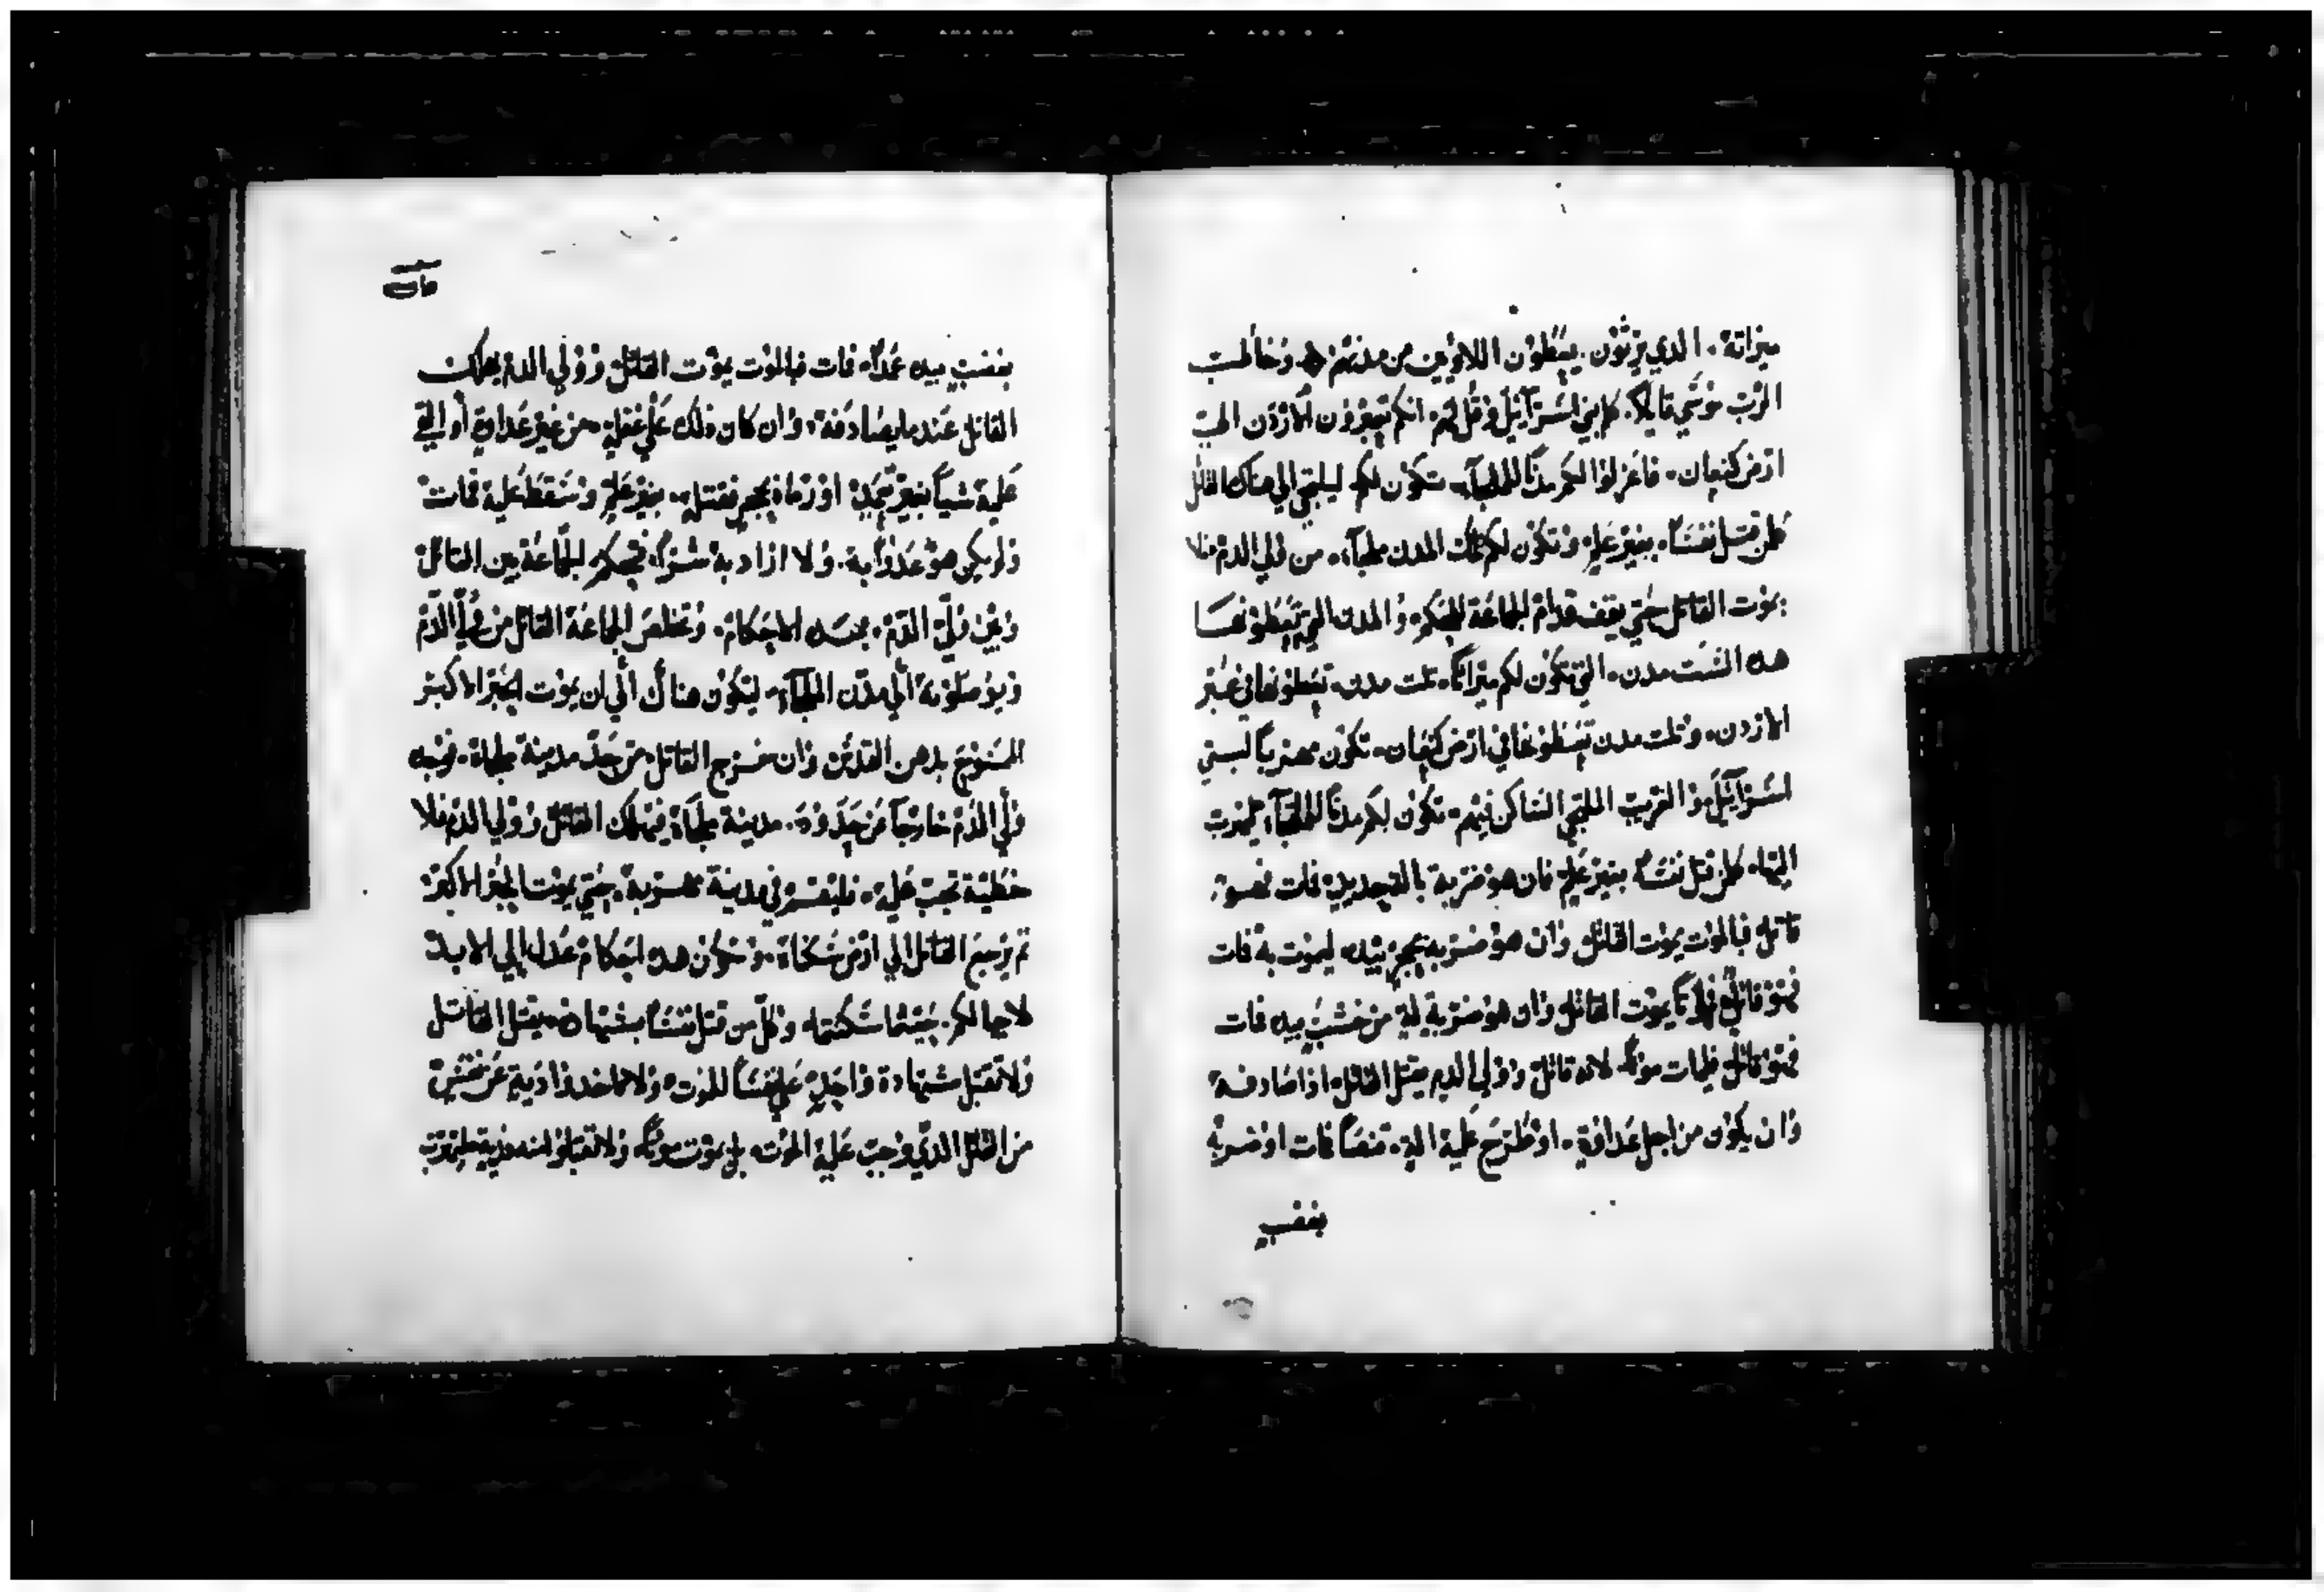 ميراثة. الدي يرثون. يعطون اللاويين من مدنهم وخاطب
الرب موسي قايلاً. كلم بني اسرآييل وقل لهم. انكم تعبرون الاردن الي
ارض كنعان. فاعزلوا لكم مدناً للملجآ. تكون لكم ليلتجي الي هناك القاتل
كلمن قتل نفساً. بغير علم. وتكون لكم تلك المدن ملجآ. من ولي الدم فلا
يموت القاتل حتي يقف قدام الجماعة للحكم. والمدن التي تعطونها
هده الست مدن. التي تكون لكم ميراثاً. تلت مدن. تعطونها في عبر
الاردن. وتلت مدن تعطونها في ارض كنعان. تكون مهرباً لبني
اسرآييل. والغريب الملتجي الساكن فيهم. تكون لكم مدناً للملجآ. ليهرب
اليها. كلمن قتل نفساً. بغير علم. فان هو ضربة بالحديد. فمات فهو
قاتل فبالموت يموت القاتل وان هو ضربه بحجر بيده ليموت به فمات
فهو قاتل فموتاً يموت القاتل وان هو ضربة بالة من خشب بيده فمات
فهو قاتل فليمات موتاً. لانه قاتل وولي الدم يقتل القاتل. اذا صادفه
وان يكون من اجل عداوة. او طرح عليه الة. فمات او ضربة
بغضب
بغضب بيده عمداً. فمات فبالموت يموت القاتل وولي الدم يهلك
القاتل عندما يصادفة. وان كان ذلك علي غفلة. من غير عداوة او القي
علية شياً بغير تعمد. او رماة بحجر فقتلة. بغير علم وسقط علية فمات
ولم يكن هو عدواً بة. ولا اراد به شراً. فتحكم الجماعة بين القاتل
وبين ولي الدم. بهده الاحكام. وتخلص الجماعة القاتل من ولي الدم
ويوصلونة الي مدن الملجآ. ليكون هناك الي ان يموت الحبر الاكبر
المسوح بدهن القدس وان خرج القاتل. من حد مدينة ملجاة. فوجده
ولي الدم خارجاً من حدود. مدينة ملجاة فيهلك القاتل وولي الدم فلا
خطية تجب علية. فليقر في مدينة مهربة. حتي يموت الحبر الاكبر
تم يرجع القاتل الي ارض سكناة. وتكون هده احكام عدل الي الابد
لاجيالكم. حيتما سكنتم وكل من قتل نفساً بشهادة. يقتل القاتل
ولا تقبل شهادة واحد. علي نفساً للموت. ولا تاخدوا دية عن نفس
من القاتل الدي وجب علية الموت. بل يموت موتاً. ولا تقبلوا منه دية